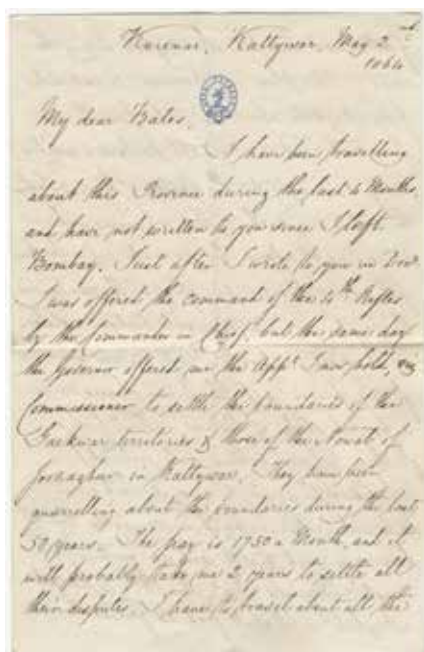 Kattywar, May 2nd
1864
My dear Bates,
I have been travelling
about this Province during the last 4 Months,
and have not written to you since I left
Bombay. Just after I wrote to you in
I was offered the command of the 4th Rifles
by the Commander in Chief, but the same day
the Governor offered me the Appt I now hold,
Commissioner to settle the boundaries of the
territories & those of the Nowab of
in Kattywar. They have been
quarrelling about the boundaries during the last
50 years. The pay is 1750 a Month, and it
will probably take me 2 years to settle all
their disputes. I have to travel about all the